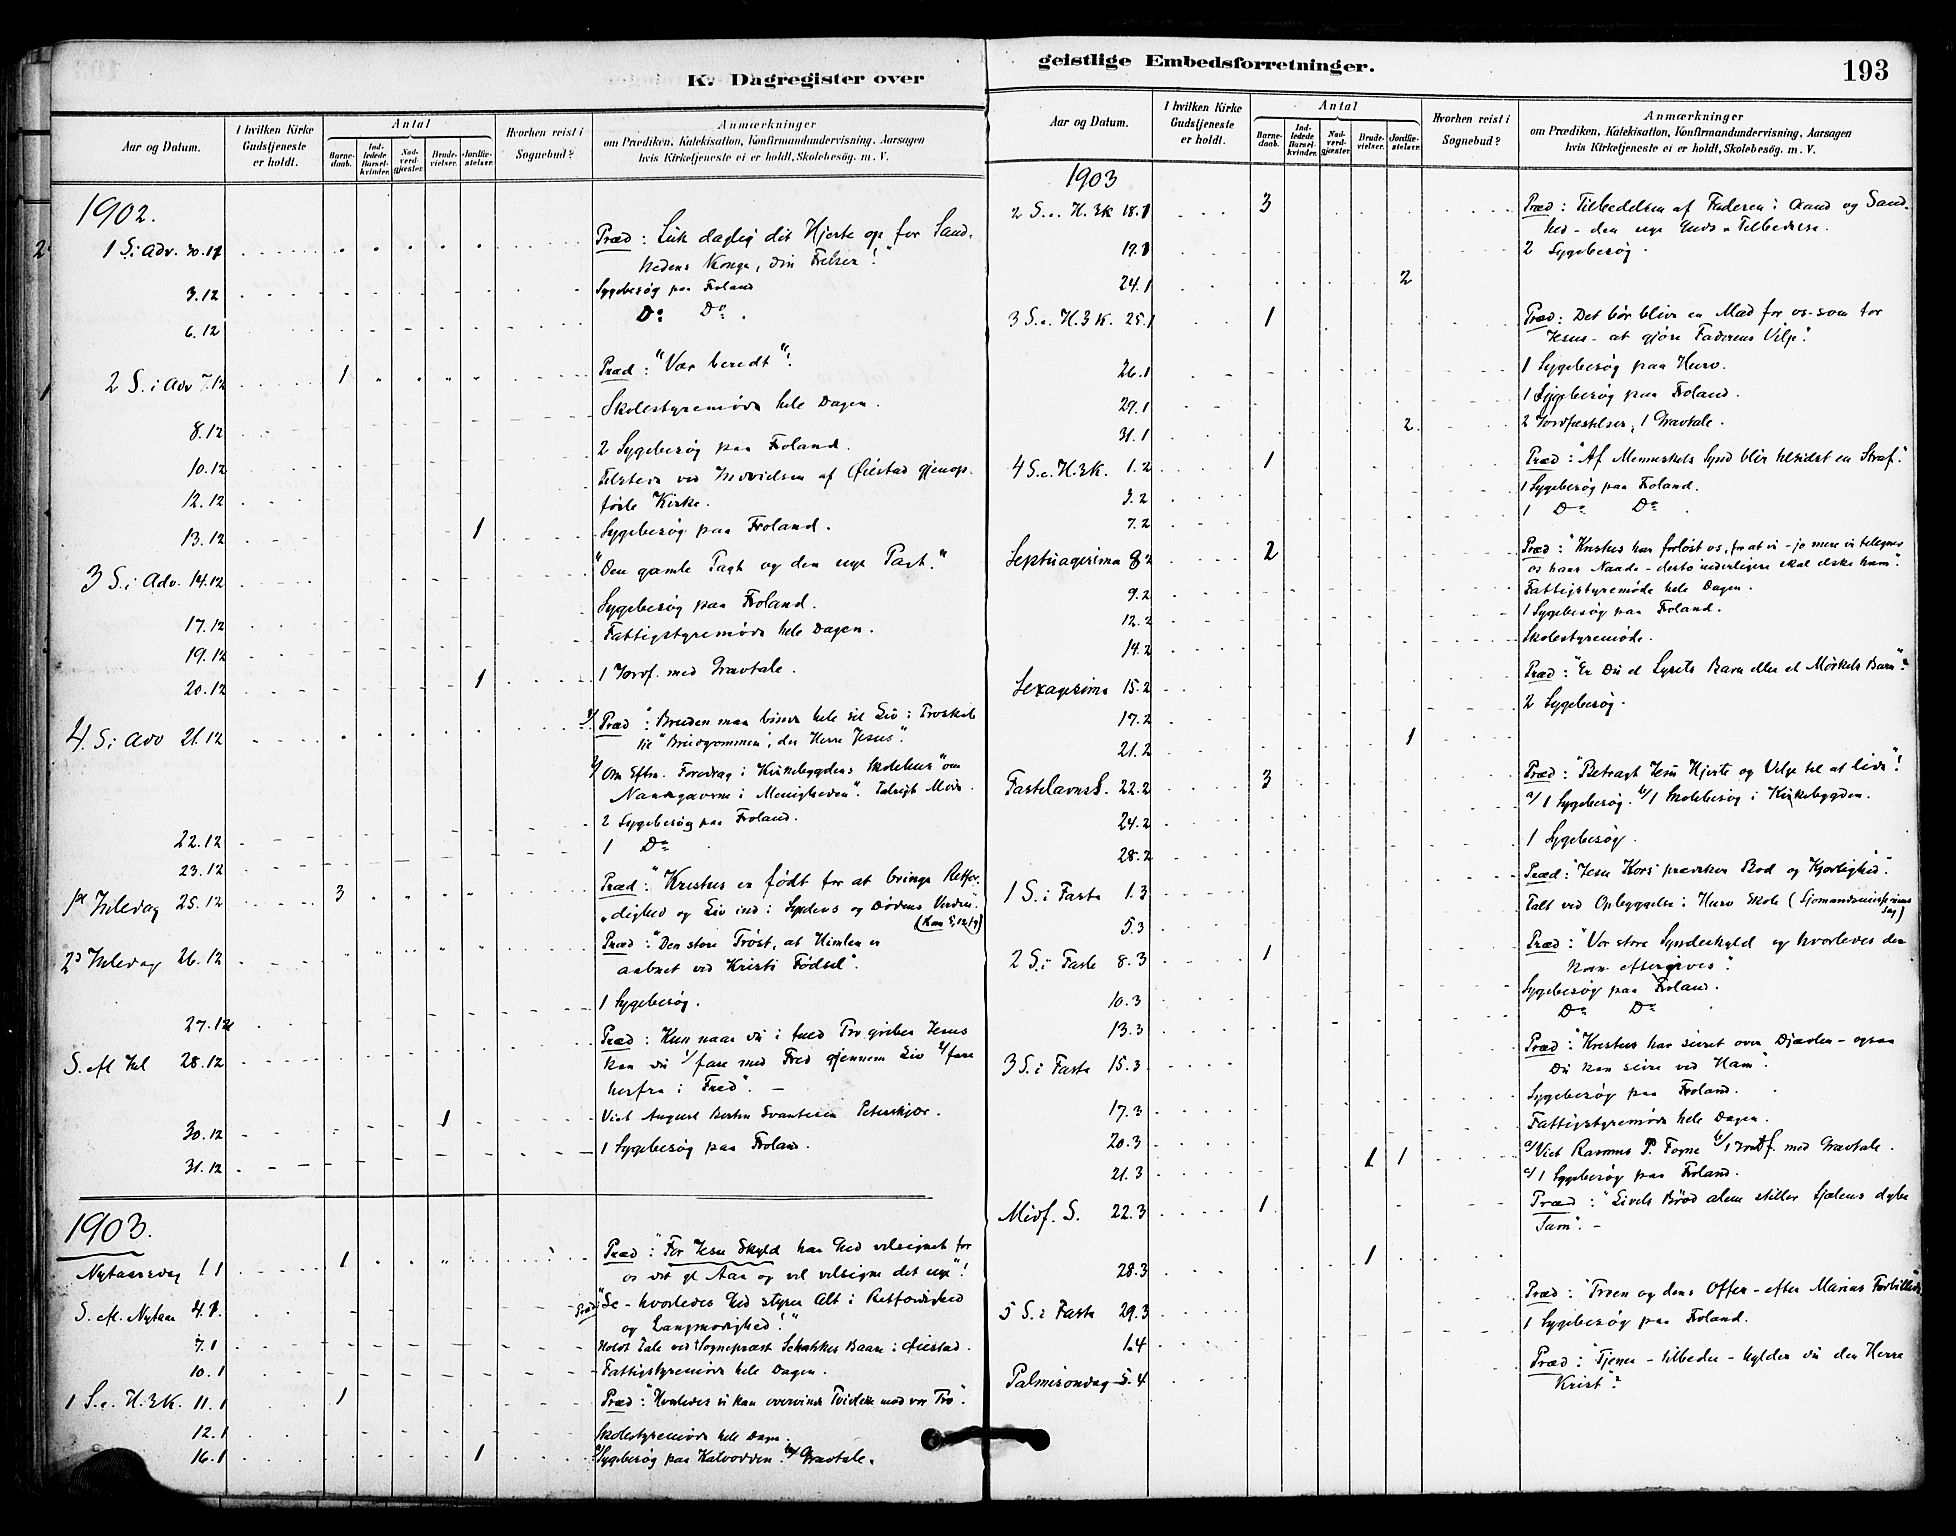 K. Dagregister over
Aar og Datum.
I hvilken Kirke Gudstjeneste er holdt.
Antal
Barnedaab.
Indledede Barselkvinder.
Nadverdgjester.
Brudevielser.
Jordfæstelser.
Hvorhen reist i Sognebud?
Anmærkninger
om Prædiken, Katekisation, Konfirmandundervisning, Aarsagen
hvis Kirketjeneste ei er holdt, Skolebesøg m. V.
1902.
1 S. i Adv. 30.11 Præd: Luk daglig dit Hjerte op for Sand-
hedens Konge, din Frelser!
3.12 Sygebesøg paa Froland
6.12 Do Do.
2 S. i Adv 7.12 1 Præd: "Vær beredt"!
8.12 Skolestyremøde hele Dagen.
10.12 2 Sygebesøg paa Froland.
12.12 Tilstede ved Indvielsen af Øiestad gjenop-
førte Kirke.
13.12 1 Sygebesøg paa Froland.
3 S. i Adv. 14.12 "Den gamle Pagt og den nye Pagt."
17.12 Sygebesøg paa Froland.
19.12 Fattigstyremøde hele Dagen.
20.12 1 1 Jordf. med Gravtale.
4. S. i Adv 21.12 a/ Præd: "Bruden maa binde hele sit Liv i Troskab
til "Brudgommen", den Herre Jesus".
b/ Om Eftm. Foredrag i Kirkebygdens Skolehus "om
Naadegaverne i Menigheden". Talrigt Møde.
22.12 2 Sygebesøg paa Froland.
23.12 1 Do
1ste Juledag 25.12 3 Præd: "Kristus er født for at bringe Retfær-
dighed og Liv ind i Syndens og Dødens Verden".
(Rom 5,12-19)
2d Juledag 26.12 Præd: "Den store Trøst, at Himlen er
aabnet ved Kristi Fødsel".
27.12 1 Sygebesøg.
S. efl Jul 28.12 Præd: Kun naar du i tro Tro griber Jesus
kan du a/ fare med Fred gjennem Liv b/ fare
herfra i Fred". –
30.12 1 Viet August Berten Svantesen Peterskjær.
31.12 1 Sygebesøg paa Froland.
1903.
Nytaarsdag 1.1 1 Præd: "For Jesu Skyld har Gud velsignet for
os det gl Aar og vil velsigne det nye"!
S. efl. Nytaar 4.1. Præd "Se – hvorledes Gud styrer Alt i Retfærdighed
og Langmodighed!"
7.1 Holdt Tale ved Sogneprest Schatkes Baare i Øiestad.
10.1 Fattigstyremøde hele Dagen.
1 S. e. H.3K. 11.1 1 Præd: "Hvorledes vi kan overvinde Tvilen med vor Tro".
12.1 Skolestyremøde hele Dagen.
16.1 1 a/ Sygebesøg paa Kalvodden. b/ Gravtale.
geistlige Embedsforretninger.
193
Aar og Datum.
I hvilken Kirke Gudstjeneste er holdt.
Antal
Barnedaab.
Indledede Barselkvinder.
Nadverdgjester.
Brudevielser.
Jordfæstelser.
Hvorhen reist i Sognebud?
Anmærkninger
om Prædiken, Katekisation, Konfirmandundervisning, Aarsagen
hvis Kirketjeneste ei er holdt, Skolebesøg m. V.
1903
2 S. e. H.3K 18.1 3 Præd: Tilbedelsen af Faderen i Aand og Sand-
hed – den nye Guds-Tilbedelse.
19.1 2 Sygebesøg.
24.1 2
3 S. e. H.3K. 25.1 1 Præd: Det bør blive en Mad for os som for
Jesus – at gjøre Faderens Vilje".
26.1 1 Sygebesøg paa Hurv.
29.1 1 Sygebesøg paa Froland.
31.1 2 2 Jordfæstelser, 1 Gravtale.
4 S. e. H.3K. 1.2 1 Præd: "Af Menneskets Synd blir tilsidst en Straf".
3.2 1 Sygebesøg paa Froland.
7.2 1 Do Do.
Septuagesima 8.2 2 Præd: "Kristus har forløst os, for at vi – jo mere vi tilegner
os hans Naade – desto inderligere skal elske ham".
9.2 Fattigstyremøde hele Dagen.
12.2 1 Sygebesøg paa Froland.
14.2 Skolestyremøde.
Sexagesima 15.2 Præd: "Er Du et Lysets Barn eller et Mørkets Barn"?
17.2 2 Sygebesøg.
21.2 1
Fastelavns S. 22.2 3 Præd: "Betragt Jesu Hjerte og Vilje til at lide"!
24.2 a/ 1 Sygebesøg. b/ 1 Skolebesøg i Kirkebygden.
28.2 1 Sygebesøg.
1 S. i Faste 1.3 Præd: "Jesu Kors prædiker Bod og Kjærlighed".
5.3 Talt ved Opbyggelse i Hurv Skole (Sjømandsmissionens
Sag)
2 S. i Faste 8.3 1 Præd: "Vor store Syndeskyld og hvorledes den
kan eftergives".
10.3 Sygebesøg paa Froland.
13.3 Do Do
3 S. i Faste 15.3 Præd: "Kristus har seiret over Djævlen – ogsaa
Du kan seire ved Ham".
17.3 Sygebesøg paa Froland.
20.3 Fattigstyremøde hele Dagen.
21.3 1 1 a/ Viet Rasmus P. Fogne b/ 1 Jordf. med Gravtale.
c/ 1 Sygebesøg paa Froland.
Midf. S. 22.3 1 Præd: "Livets Brød alene stiller Sjælens dybe
Savn". –
28.3 1
5 S. i Faste 29.3 Præd: "Troen og dens Offer – efter Marias Forbillede"
1.4 1 Sygebesøg paa Froland.
Palmesøndag 5.4 Præd: "Tjener – tilbeder – hylder du den Herre
Krist"?